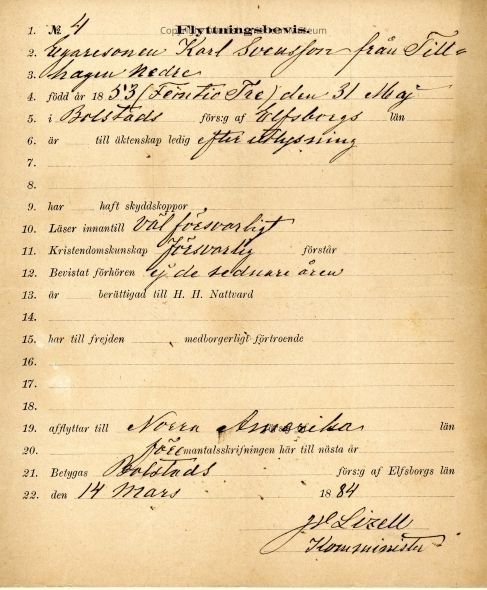 1. № 4 Flyttningsbevis.
2. Egaresonen Karl Svensson från Till-
3. hagen Nedre
4. född år 1853 (Femtio Tre) den 31 Maj
5. i Bolstads förs:g af Elfsborgs län
6. är till äktenskap ledig efter utlysning
7.
8.
9. har haft skyddskoppor
10. Läser innantill väl försvarligt
11. Kristendomskunskap försvarlig förstår
12. Bevistat förhören ej de sednare åren
13. är berättigad till H. H. Nattvard
14.
15. har till frejden medborgerligt förtroende
16.
17.
18.
19. afflyttar till Norra Amerika län
20. före mantalsskrifningen här till nästa år
21. Betygas Bolstads förs:g af Elfsborgs län
22. den 14 Mars 1884
Lizell
Komminister